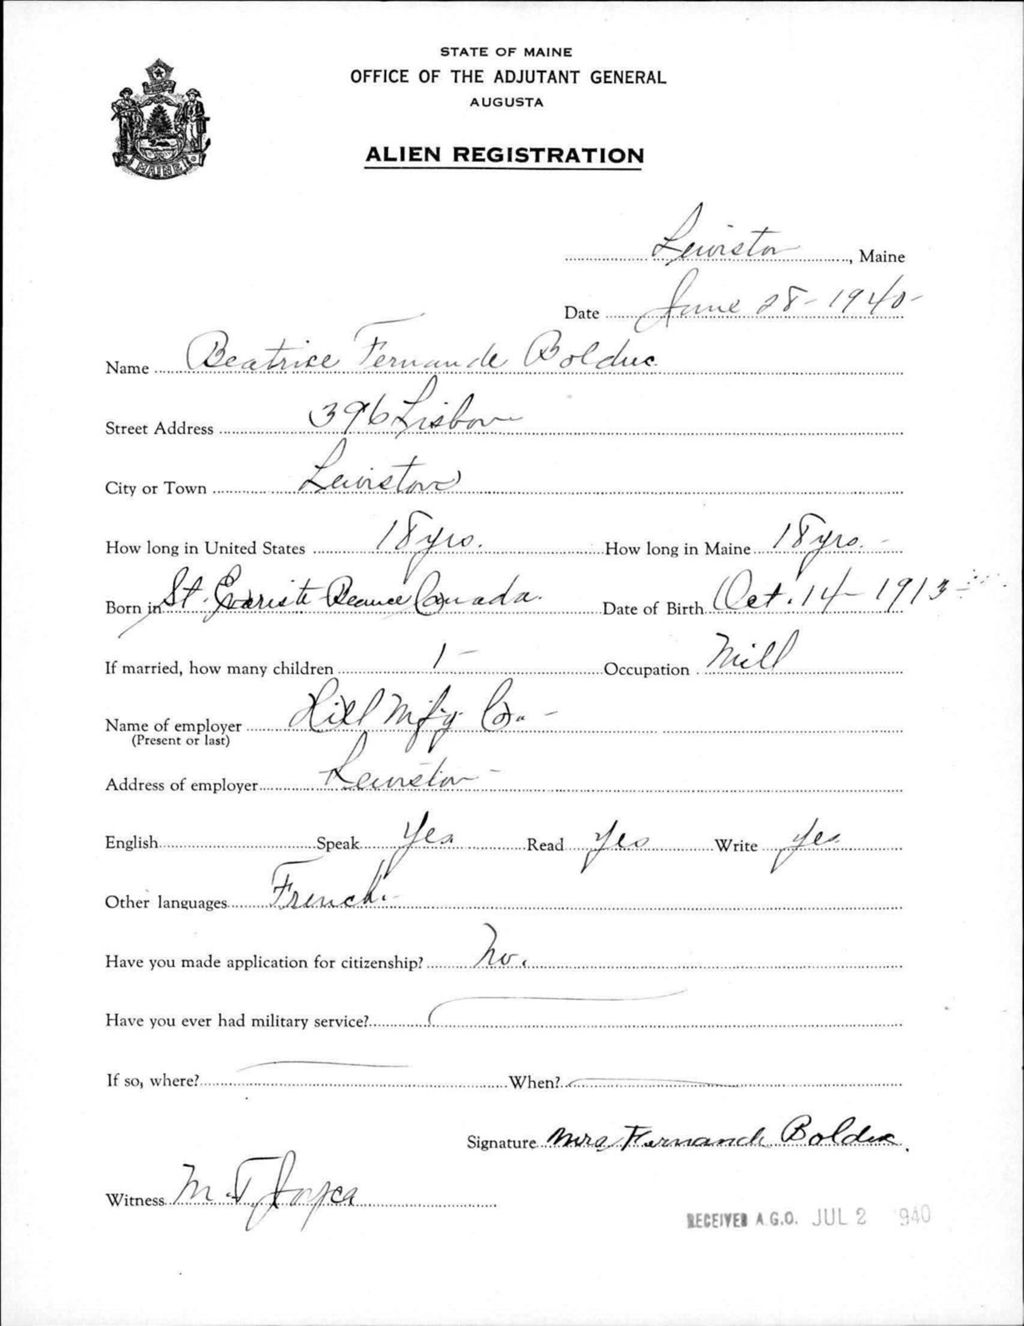 STATE OF MAINE
OFFICE OF THE ADJUTANT GENERAL
AUGUSTA
ALIEN REGISTRATION
MAINE
Lewiston, Maine
Date June 28-1940-
Name Beatrice Fernande Bolduc
Street Address 396 Lisbon
City or Town Lewiston
How long in United States 18 yrs. How long in Maine 18 yrs. -
Born in St. Evariste Beauce Canada. Date of Birth Oct. 14-1913-
If married, how many children 1- Occupation Mill
Name of employer Hill Mfg. Co. -
(Present or last)
Address of employer Lewiston -
English Speak Yes Read Yes Write Yes
Other languages French.-
Have you made application for citizenship? No.
Have you ever had military service?
If so, where? When?
Signature Mrs Fernande Bolduc.
Witness M. T. Joyce
RECEIVED A.G.O. JUL 2 1940